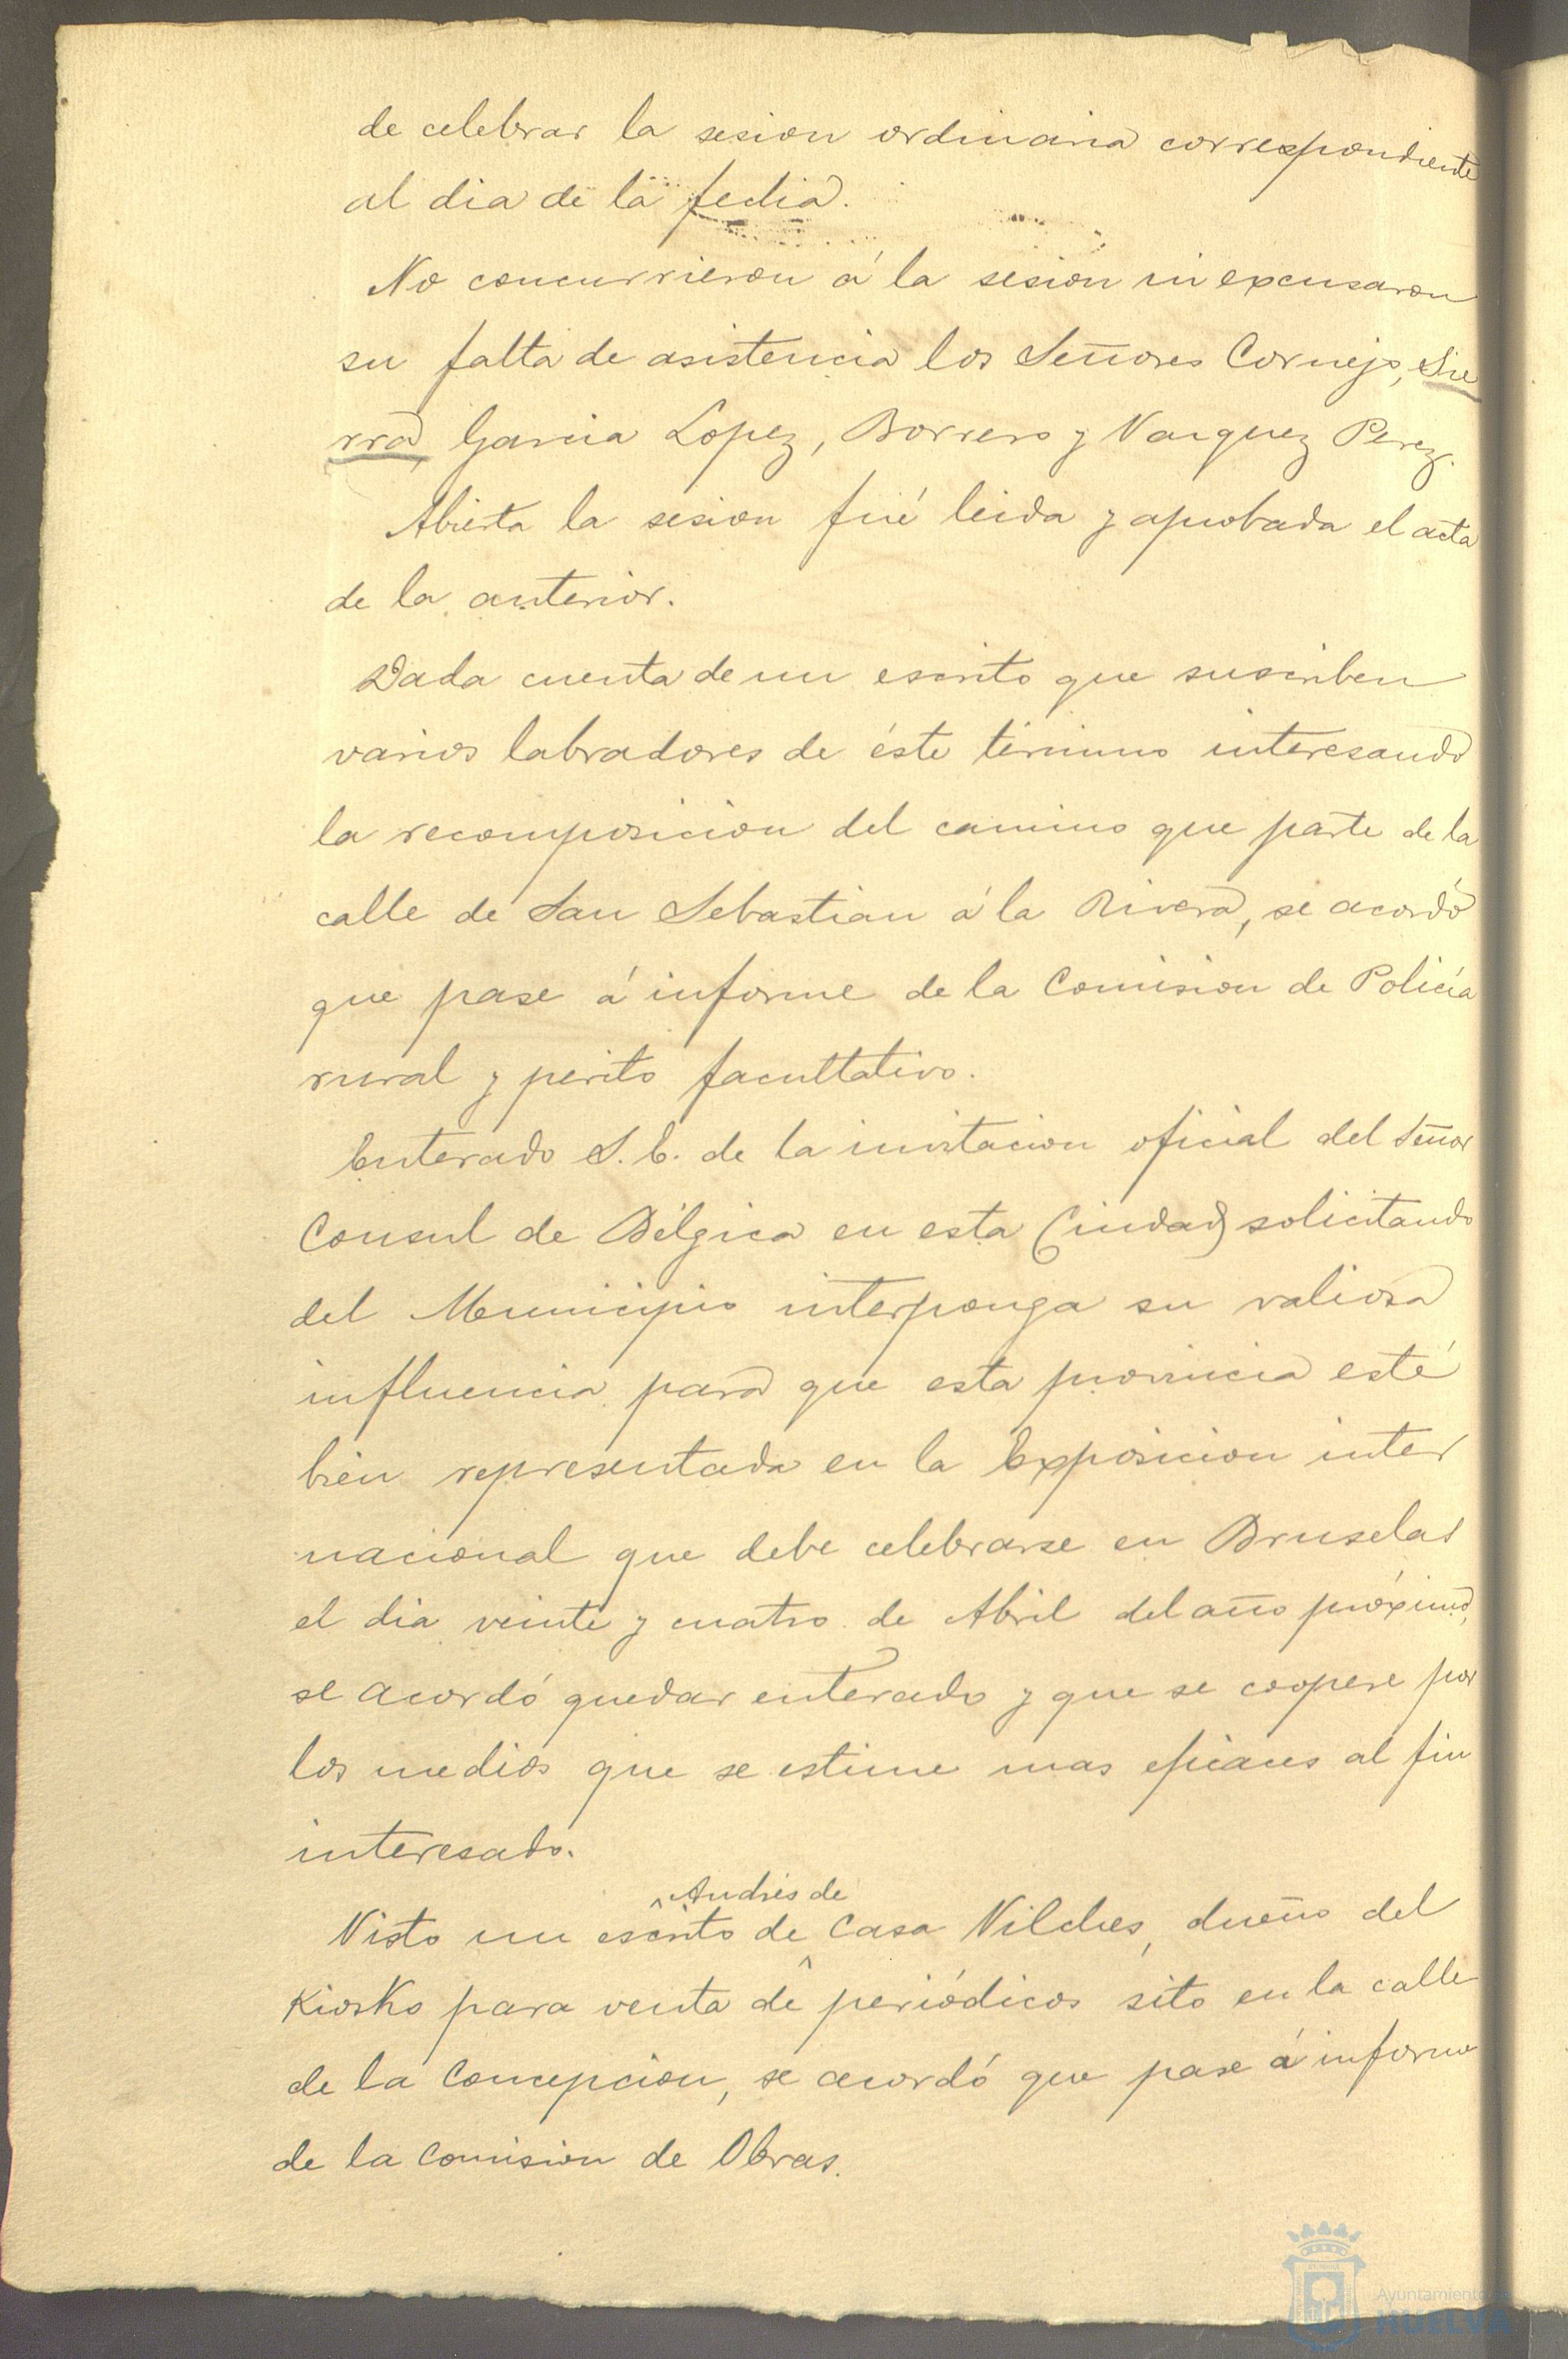 de celebrar la sesion ordinaria correspondiente
al dia de la fecha.
No concurrieron á la sesion ni excusaron
su falta de asistencia los Señores Cornejo, Sie
rra, Garcia Lopez, Borrero y Vazquez Perez.
Abierta la sesion fué leida y aprobada el acta
de la anterior.
Dada cuenta de un escrito que suscriben
varios labradores de éste término interesando
la recomposicion del camino que parte de la
calle de San Sebastian á la Rivera, se acordó
que pase á informe de la Comision de Policía
rural y perito facultativo.
Enterado S.E. de la invitacion oficial del Señor
Consul de Bélgica en esta Ciudad solicitando
del Municipio interponga su valiosa
influencia para que esta provincia esté
bien representada en la Exposicion inter
nacional que debe celebrarse en Bruselas
el dia veinte y cuatro de Abril del año próximo,
se acordó quedar enterado y que se coopere por
los medios que se estime mas eficaces al fin
interesado.
Andrés de
Visto un escrito de Casa Vilches, dueño del
Kiosko para venta de periódicos sito en la calle
de la Concepcion, se acordó que pase á informe
de la Comision de Obras.
Ayuntamiento de
HUELVA